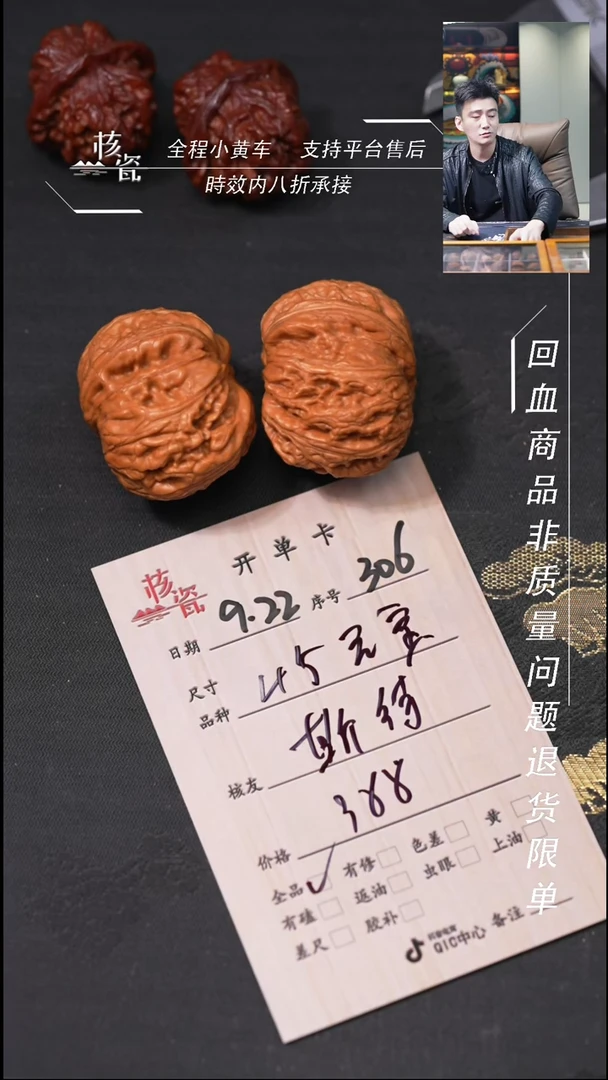 核瓷
全程小黄车 支持平台售后
時效内八折承接
回血商品非质量问题退货限单
核瓷
开单卡
日期 9.22 序号 306
尺寸
品种 45元宝
核友 斯待
价格 388
全品 ✓ 有修 色差 黄
有磕 返油 虫眼 上油
差尺 胶补
抖音电商
QIC中心 备注